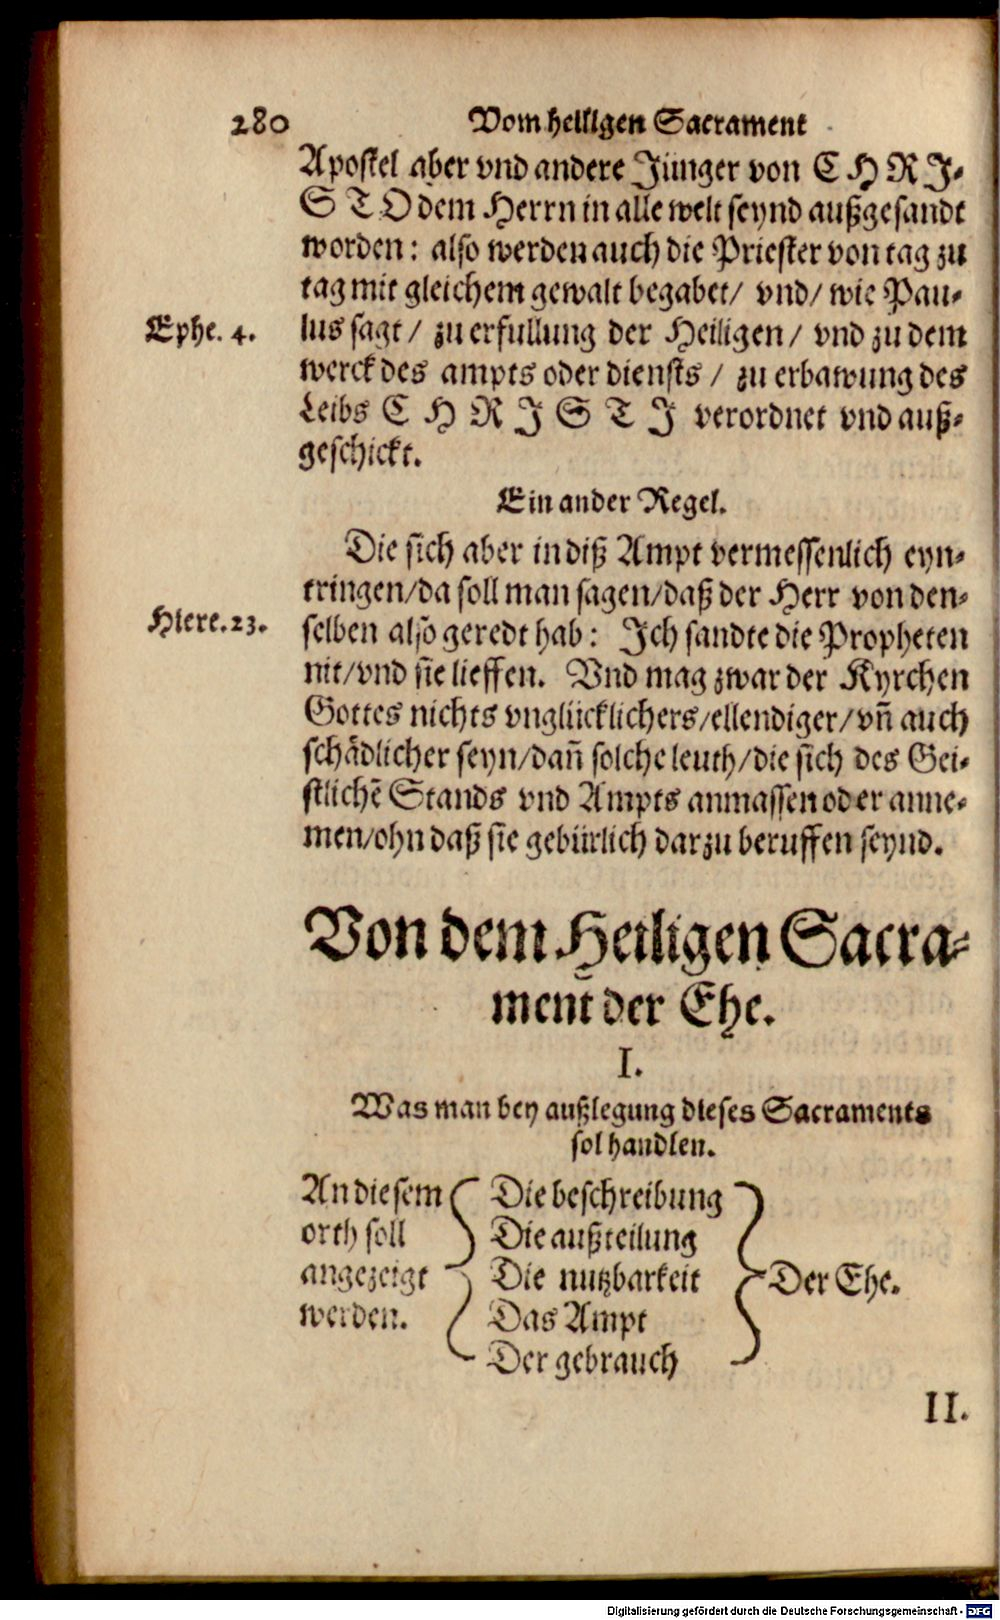 280 Vom heiligen Sacrament
Apostel aber vnd andere Jünger von CHRJ-
STO dem Herrn in alle welt seynd außgesandt
worden: also werden auch die Priester von tag zu
tag mit gleichem gewalt begabet/ vnd/ wie Pau-
Ephe. 4. lus sagt/ zu erfullung der Heiligen/ vnd zu dem
werck des ampts oder diensts/ zu erbawung des
Leibs CHRJSTJ verordnet vnd auß-
geschickt.
Ein ander Regel.
Die sich aber in diß Ampt vermessenlich eyn-
tringen/da soll man sagen/daß der Herr von den-
Hiere.23. selben also geredt hab: Jch sandte die Propheten
nit/vnd sie lieffen. Vnd mag zwar der Kyrchen
Gottes nichts vnglücklichers/ellendiger/vñ auch
schädlicher seyn/dañ solche leuth/die sich des Gei-
stlichẽ Stands vnd Ampts anmassen oder anne-
men/ohn daß sie gebürlich darzu beruffen seynd.
Von dem Heiligen Sacra-
ment der Ehe.
I.
Was man bey außlegung dieses Sacraments
sol handlen.
An diesem Die beschreibung
orth soll Die außteilung
angezeigt Die nutzbarkeit Der Ehe.
werden. Das Ampt
Der gebrauch
II.
Digitalisierung gefördert durch die Deutsche Forschungsgemeinschaft - DFG